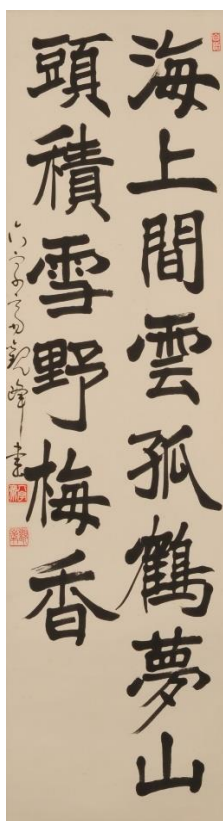 海上間雲孤鶴夢山
頭積雪野梅香
觀峰書